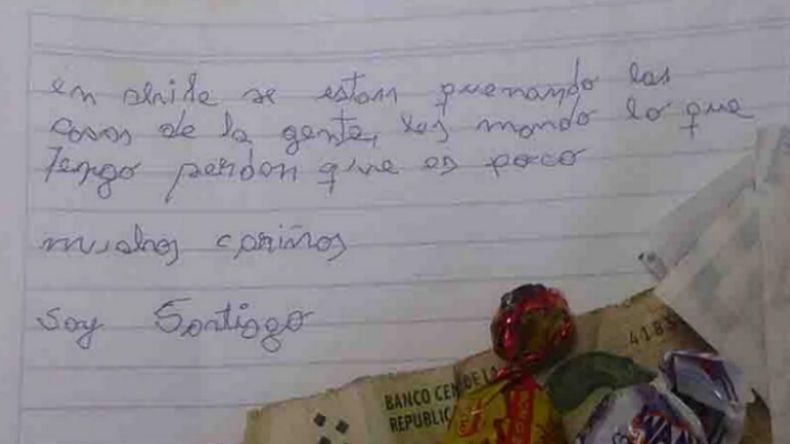 en chile se estan quemando las
casas de la gente, les mando lo que
Tengo perdon que es poco
muchos cariños
soy Santiago
BANCO CEN DE LA
REPUBLIC
4183